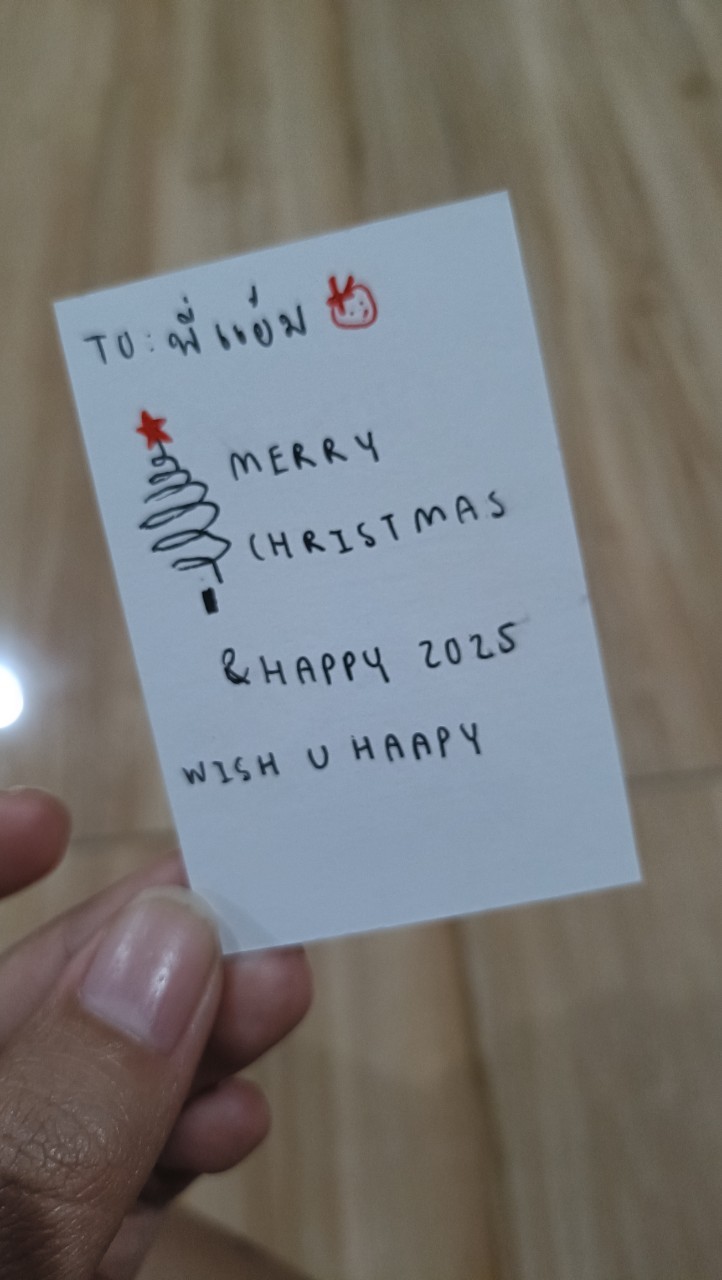 TO: พี่แย้ม
MERRY
CHRISTMAS
& HAPPY 2025
WISH U HAAPY